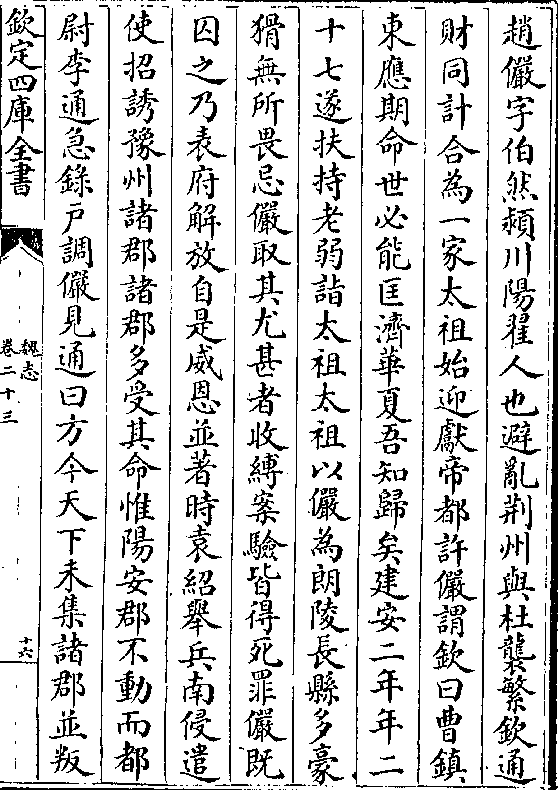 趙儼字伯然潁川陽翟人也避亂荆州與杜襲繁欽通
財同計合為一家太祖始迎獻帝都許儼謂欽曰曹鎮
東應期命世必能匡濟華夏吾知歸矣建安二年年二
十七遂扶持老弱詣太祖太祖以儼為朗陵長縣多豪
猾無所畏忌儼取其尤甚者收縛案驗皆得死罪儼既
囚之乃表府解放自是威恩並著時袁紹舉兵南侵遣
使招誘豫州諸郡諸郡多受其命惟陽安郡不動而都
尉李通急錄戶調儼見通曰方今天下未集諸郡並叛
欽定四庫全書
魏志
卷二十三
十六